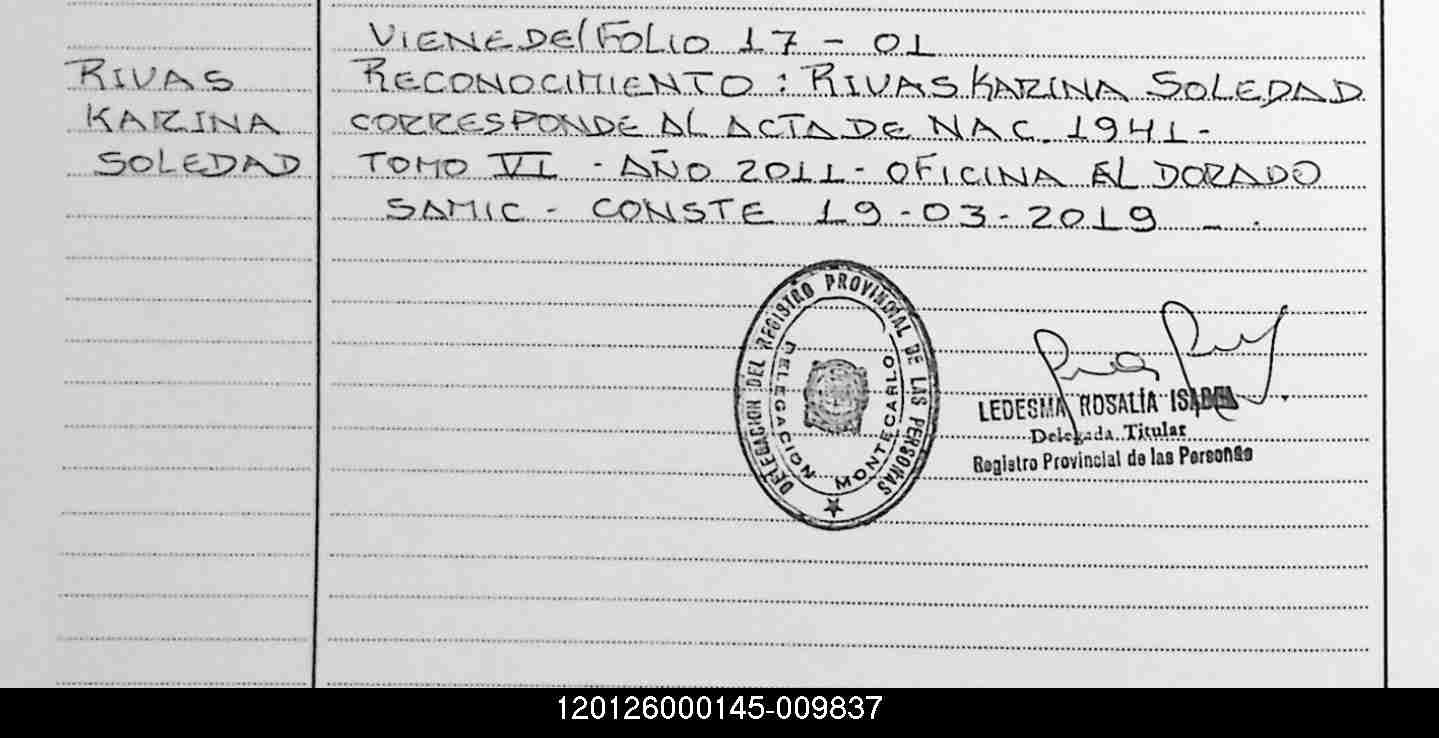 VIENE DEL FOLIO 17 - 01
RIVAS
KARINA
SOLEDAD
RECONOCIMIENTO : RIVAS KARINA SOLEDAD
CORRESPONDE AL ACTA DE NAC. 1941-
TOMO VI - AÑO 2011- OFICINA EL DORADO
SAMIC - CONSTE 19-03-2019 - .
DELEGACION DEL REGISTRO PROVINCIAL DE LAS PERSONAS
DELEGACION MONTECARLO
LEDESMA ROSALÍA ISABEL
Delegada Titular
Registro Provincial de las Personas
120126000145-009837